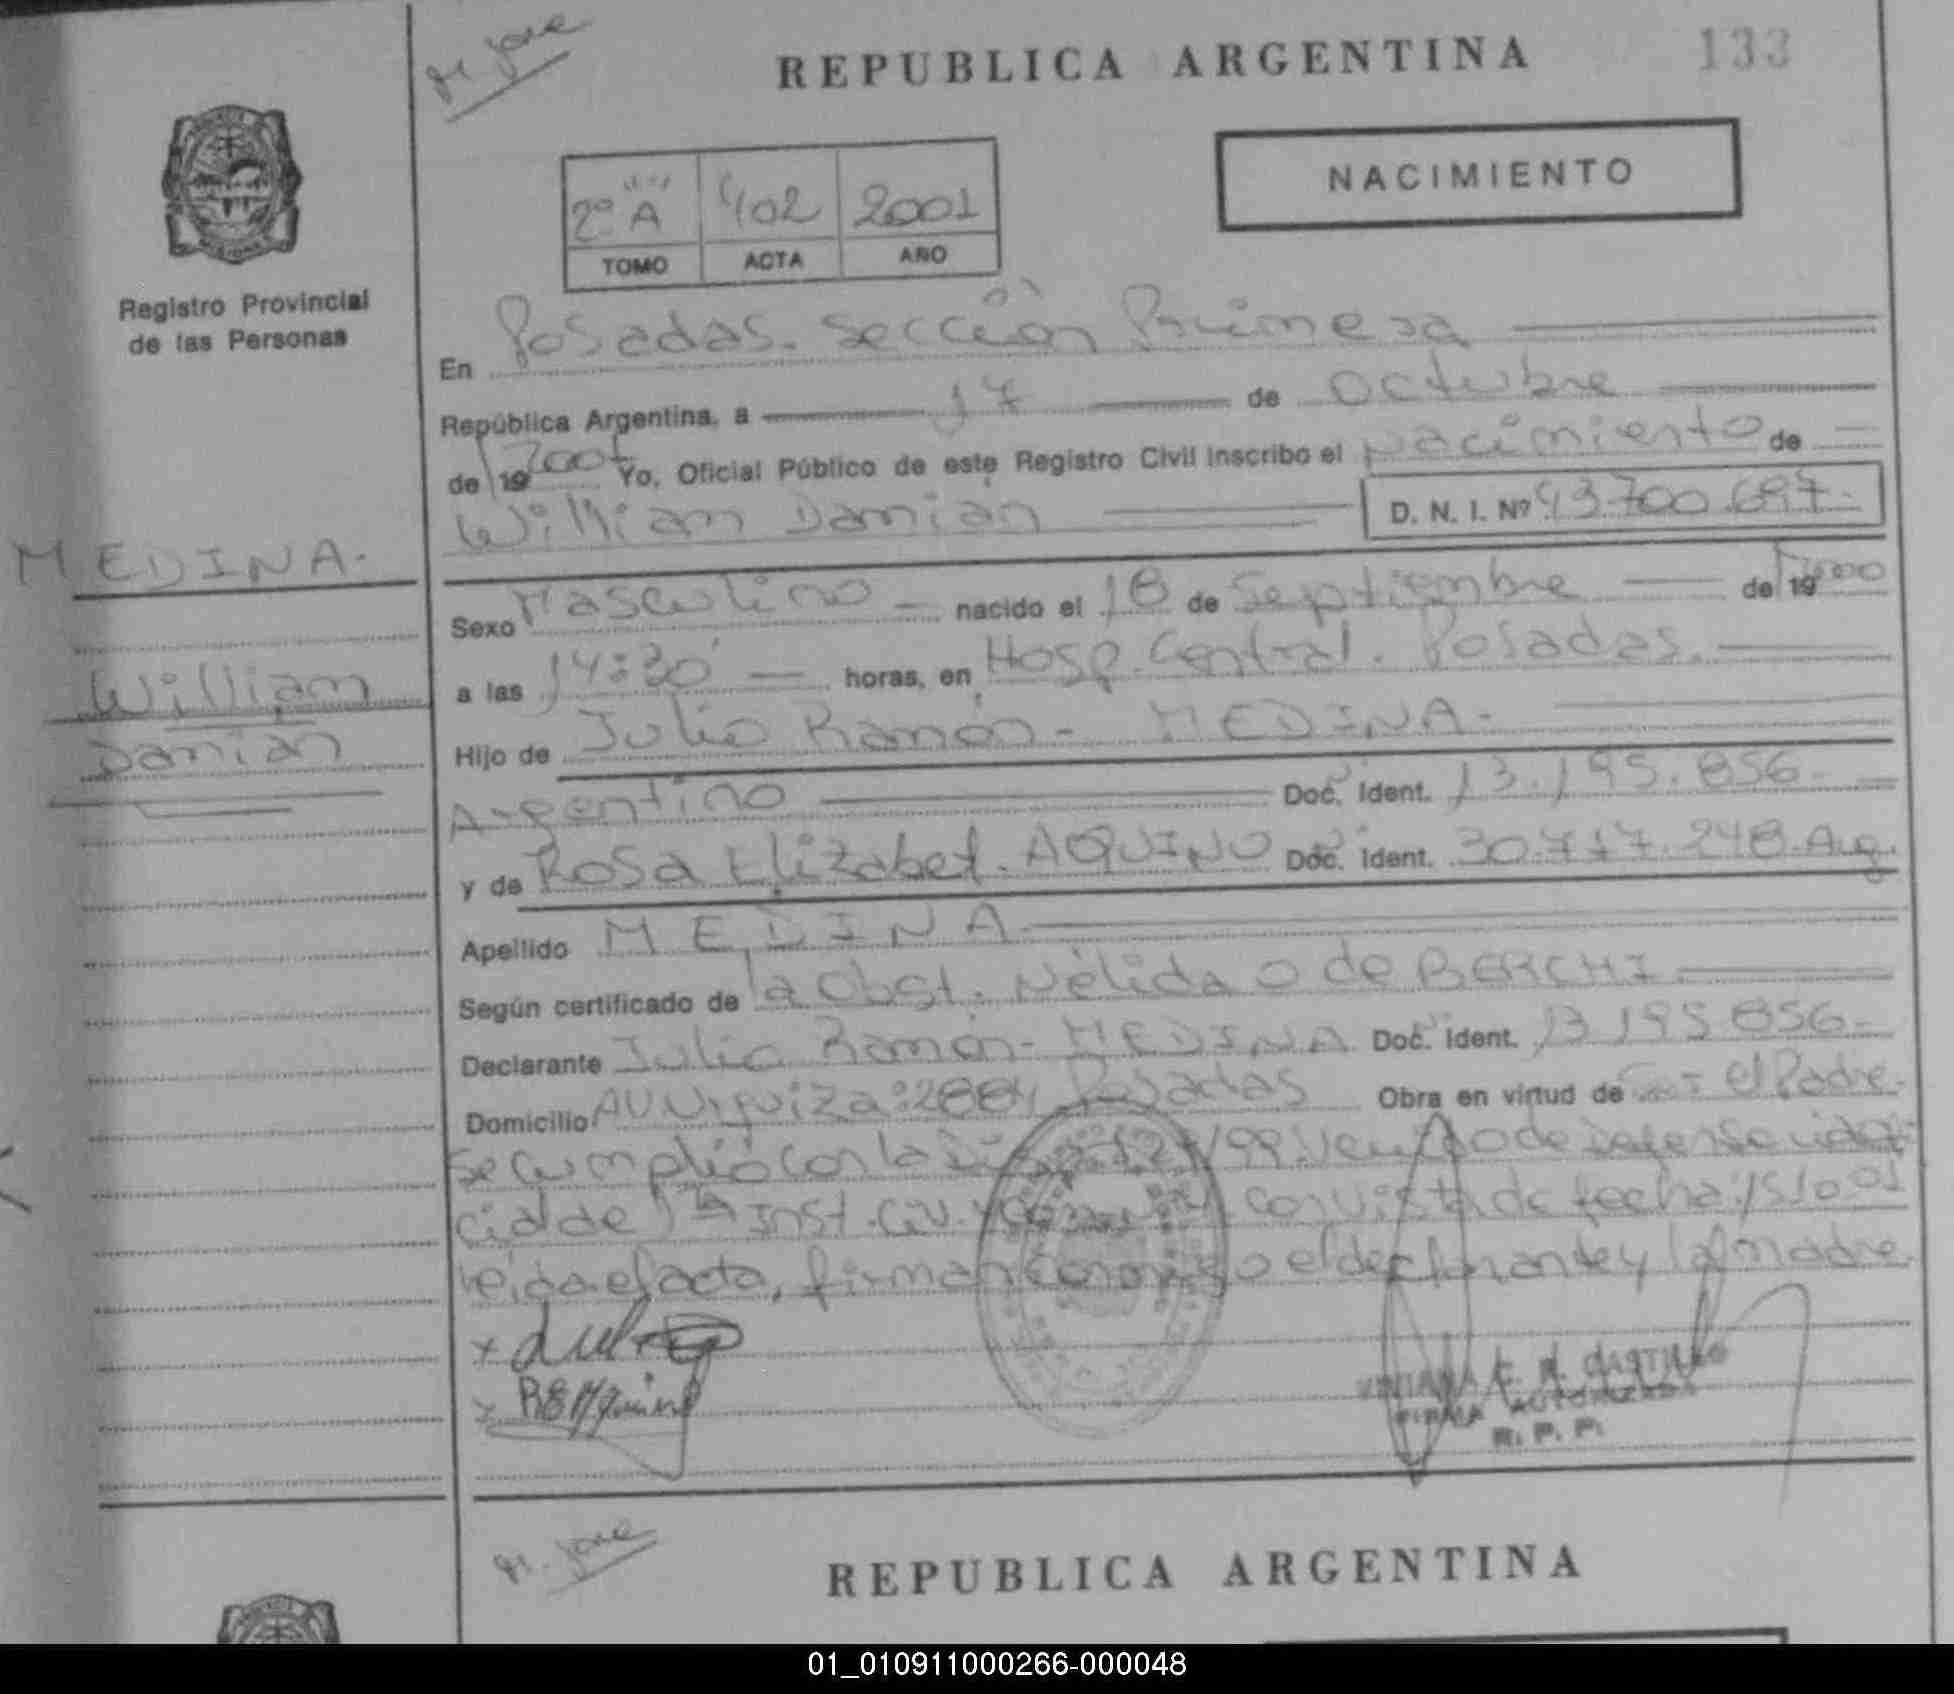 M. Jose
REPUBLICA ARGENTINA
133
NACIMIENTO
2º A 402 2001
TOMO ACTA AÑO
Registro Provincial
de las Personas
En Posadas. Sección Primera
República Argentina, a 17 de Octubre
de 19 2001 Yo, Oficial Público de este Registro Civil inscribo el nacimiento de
William Damián D. N. I. Nº 43.700.697.-
MEDINA.
William
Damián
Sexo Masculino nacido el 18 de Septiembre de 19 2000
a las 14:30 horas, en Hosp. Central. Posadas.
Hijo de Julio Ramón - MEDINA -
Argentino Doc. Ident. 13.195.856.-
y de Rosa Elizabet. AQUINO Doc. Ident. 30.717.248. Arg.
Apellido MEDINA
Según certificado de la Obst. Nélida O de BERCHI
Declarante Julio Ramón - MEDINA Doc. Ident. 13.195.856-
Domicilio AV Urquiza: Posadas Obra en virtud de el Padre.
se cumplió con la /99 de
cial de 1ra Inst. Civ. y con vista de fecha
leída el acta, firman conmigo el declarante y la madre
x
x R E Aquino
VIVIANA E. R. CASTILLO
FIRMA AUTORIZADA
R. P. P.
M. Jose
REPUBLICA ARGENTINA
01_010911000266-000048